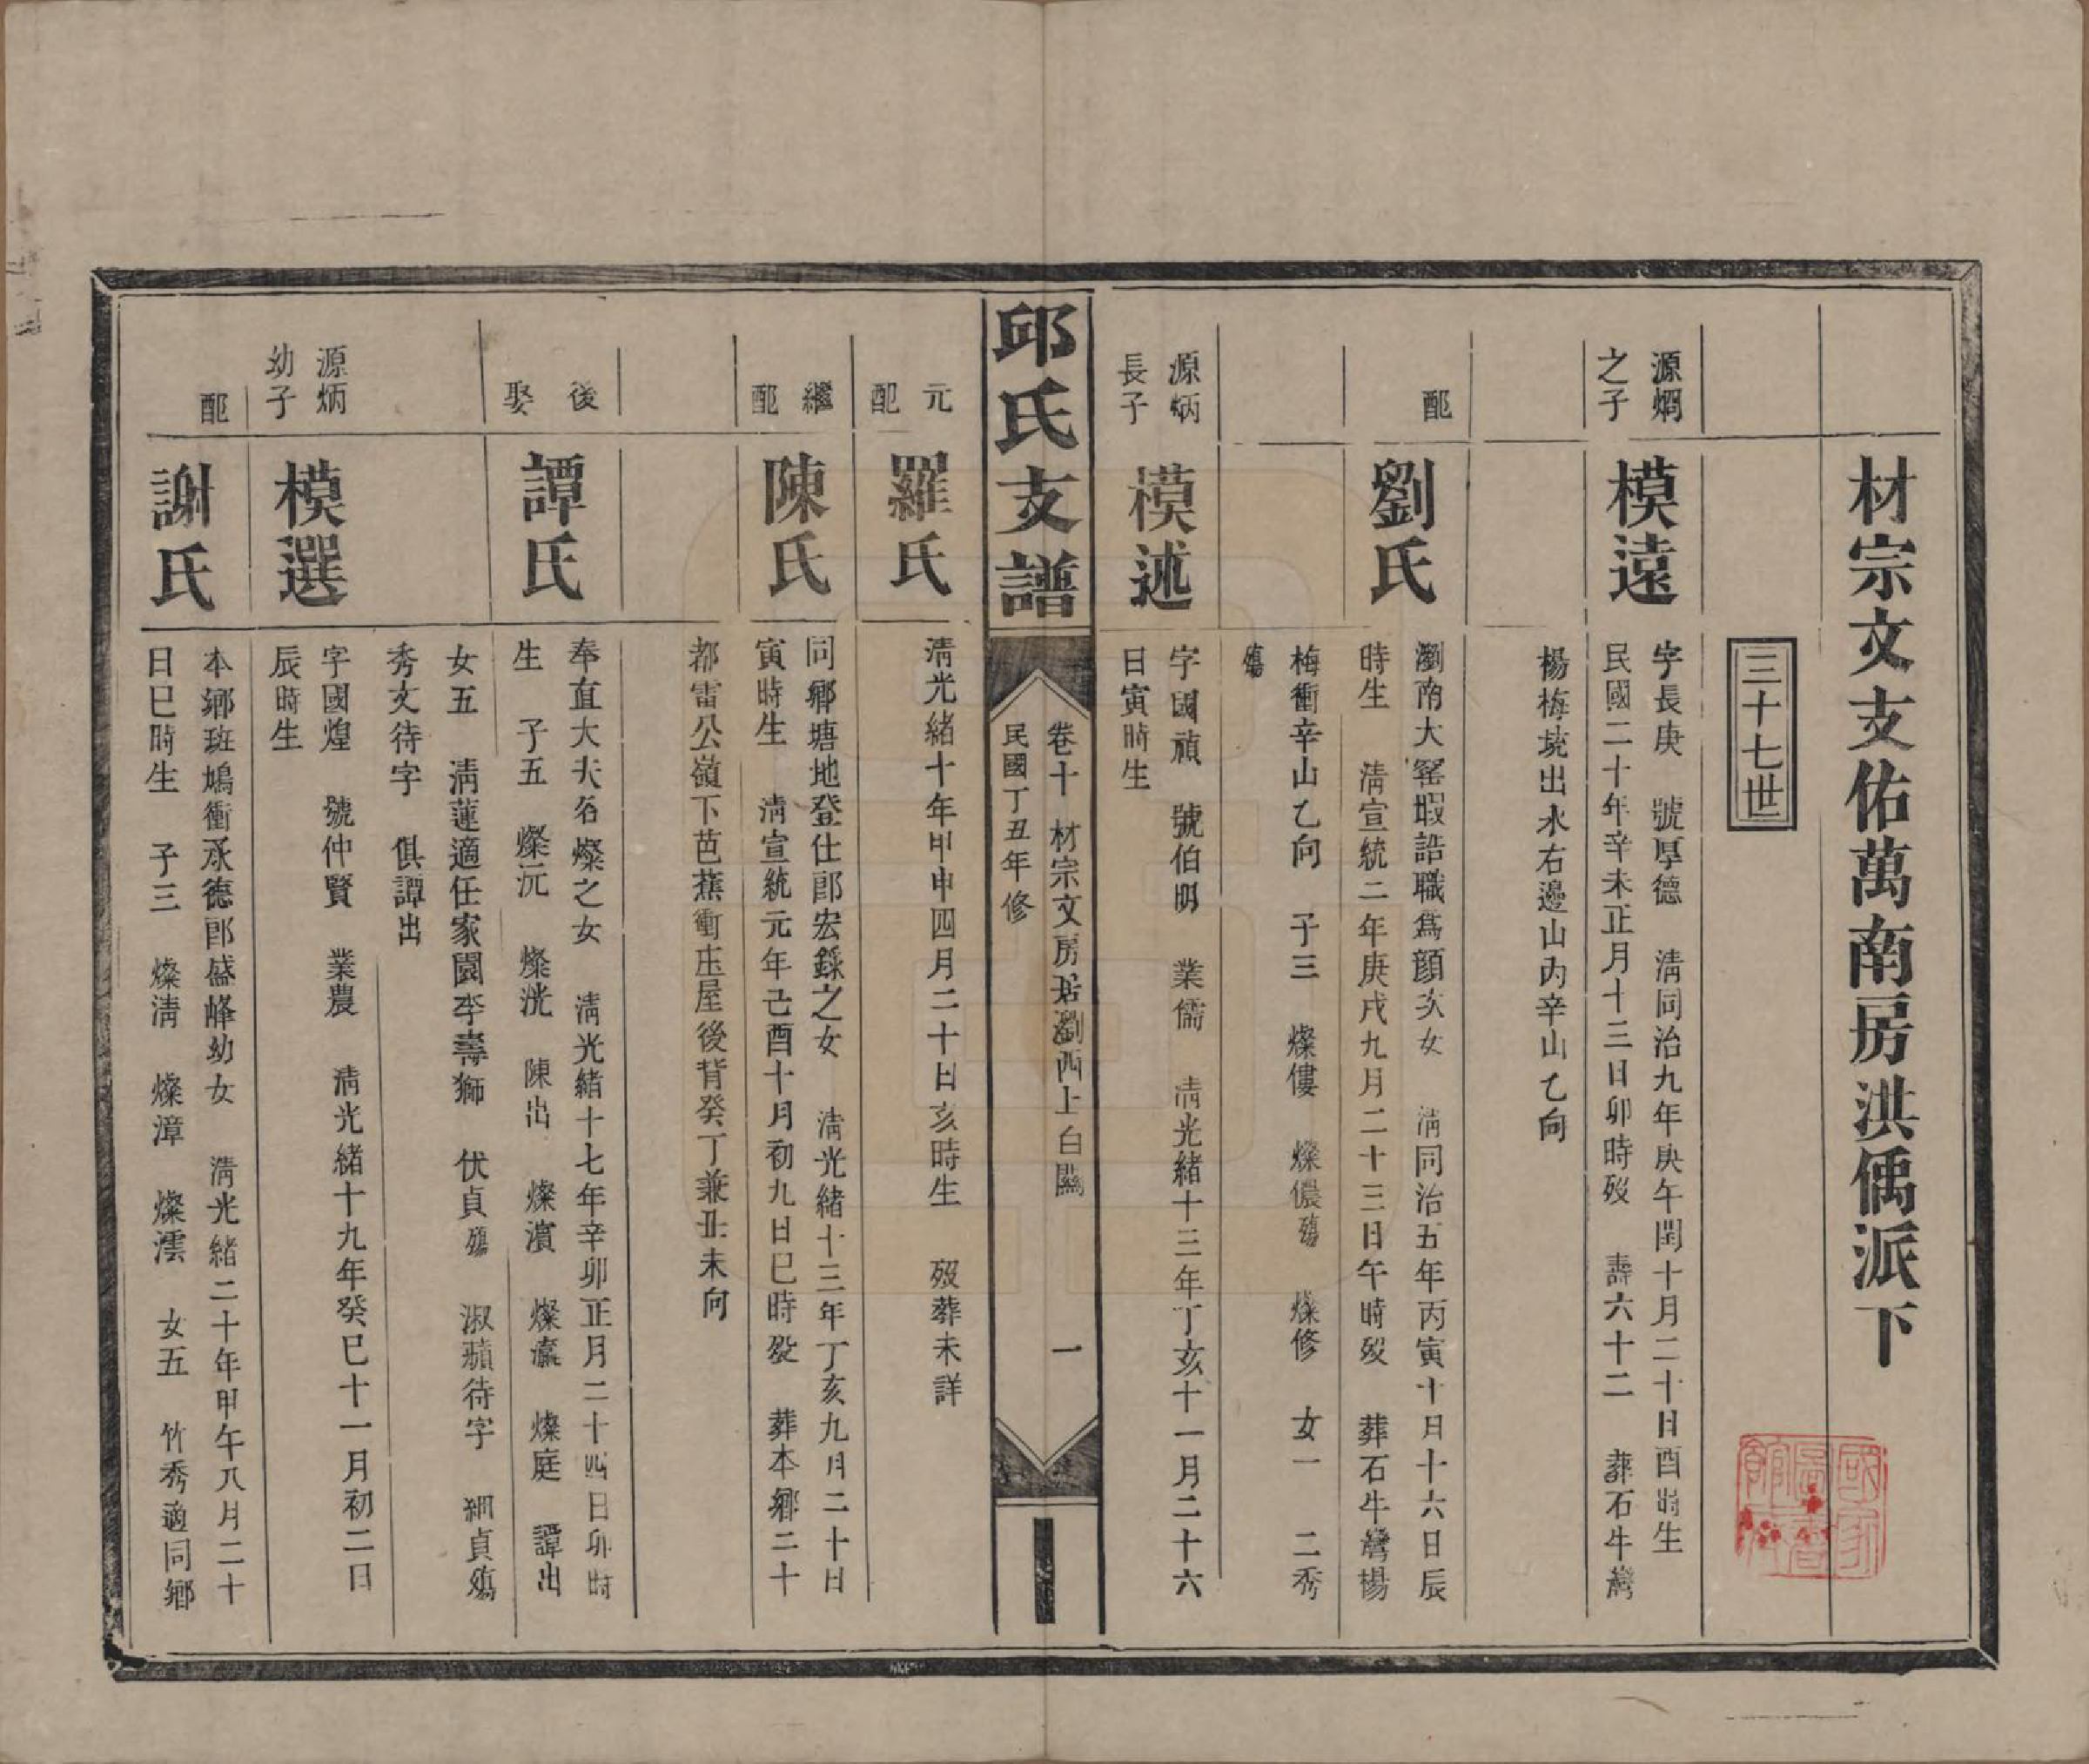 材宗文支佑萬南房洪偊派下
三十七世
源烱
之子
模遠
字長庚　號厚德　淸同治九年庚午閏十月二十日酉時生
民國二十年辛未正月十三日卯時歿　壽六十二　葬石牛灣
楊梅塝出水右邊山內辛山乙向
配
劉氏
瀏南大窰塅誥職爲顔次女　淸同治五年丙寅十月十六日辰
時生　淸宣統二年庚戌九月二十三日午時歿　葬石牛灣楊
梅衝辛山乙向　子三　燦僂　燦儂殤　燦修　女一　二秀
殤
源炳
長子
模述
字國禎　號伯明　業儒　淸光緒十三年丁亥十一月二十六
日寅時生
邱氏支譜
卷十　材宗文房居瀏西上白關
民國丁丑年修
一
元
配
羅氏
淸光緒十年甲申四月二十日亥時生　歿葬未詳
繼
配
陳氏
同鄉塘地登仕郎宏錄之女　淸光緒十三年丁亥九月二十日
寅時生　淸宣統元年己酉十月初九日巳時歿　葬本鄉二十
都雷公嶺下芭蕉衝庄屋後背癸丁兼丑未向
後
娶
譚氏
奉直大夫名燦之女　淸光緒十七年辛卯正月二十四日卯時
生　子五　燦沅　燦洸　陳出　燦濵　燦瀛　燦庭　譚出
女五　淸蓮適任家園李壽獅　伏貞殤　淑蘋待字　細貞殤
秀文待字　俱譚出
源炳
幼子
模選
字國煌　號仲賢　業農　淸光緒十九年癸巳十一月初二日
辰時生
配
謝氏
本鄉班鳩衝承德郎盛峰幼女　淸光緒二十年甲午八月二十
日巳時生　子三　燦淸　燦漳　燦澐　女五　竹秀適同鄉